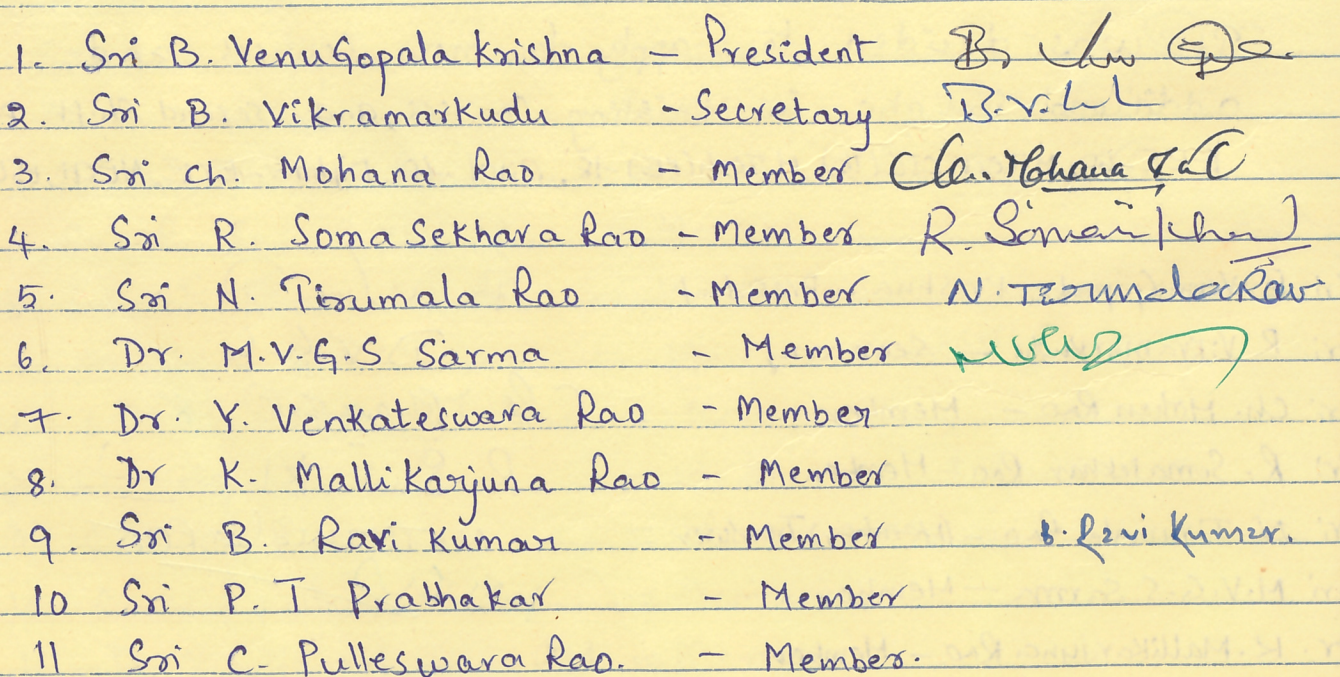 1. Sri B. VenuGopala Krishna - President
2. Sri B. Vikramarkudu - Secretary B.V.
3. Sri ch. Mohana Rao - Member Ch. Mohana Rao
4. Sri R. Soma Sekhara Rao - Member R. Soma
5. Sri N. Tirumala Rao - Member N. Tirumala Rao
6. Dr. M.V.G.S Sarma - Member
7. Dr. Y. Venkateswara Rao - Member
8. Dr K. Mallikarjuna Rao - Member
9. Sri B. Ravi Kumar - Member B. Ravi Kumar.
10 Sri P. T Prabhakar - Member
11 Sri C. Pulleswara Rao. - Member.